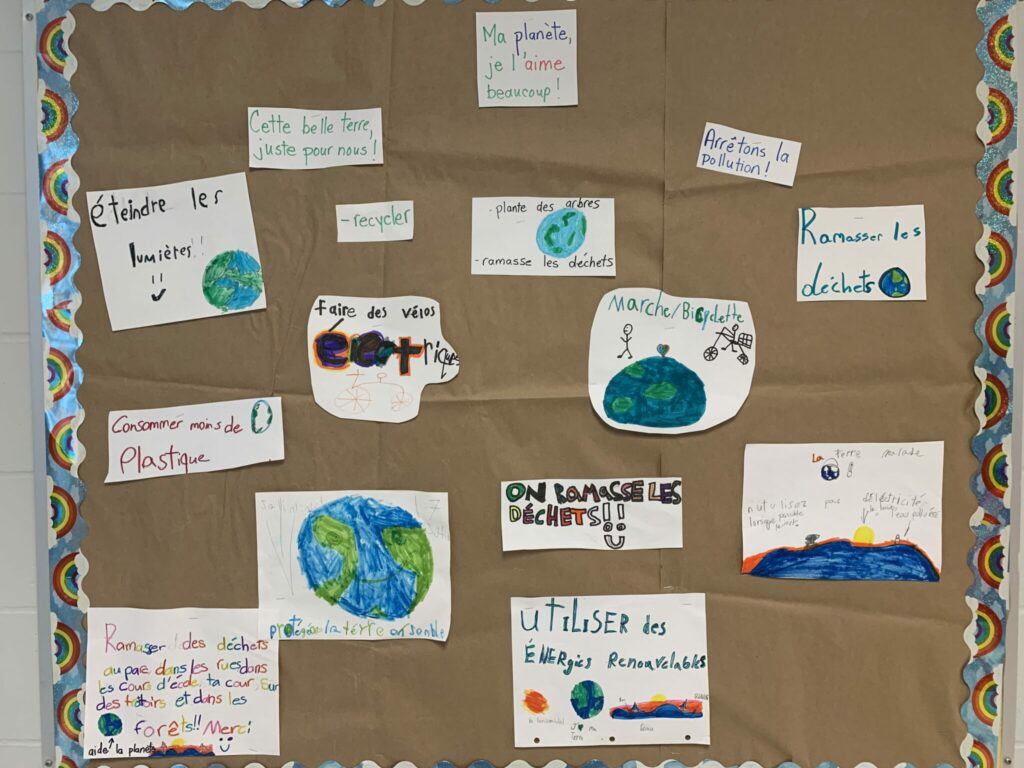 Ma planète,
je l'aime
beaucoup !
Cette belle terre,
juste pour nous !
Arrêtons la
pollution !
éteindre les
lumières !!
- recycler
- plante des arbres
- ramasse les déchets
Ramasser les
déchets
faire des vélos
électriques
Marche/Bicyclette
Consommer moins de
Plastique
ON RAMASSE LES
DÉCHETS!!
La terre malade
pas d'électricité
lorsque
l'eau polluée
la terre ensemble
UTILISER des
ÉNERgies Renouvelables
J' ma
Terre
Ramaser des déchets
au parc, dans les rues, dans
les cours d'école, ta cour, sur
des trotoirs et dans les
forêts!! Merci
aide la planète